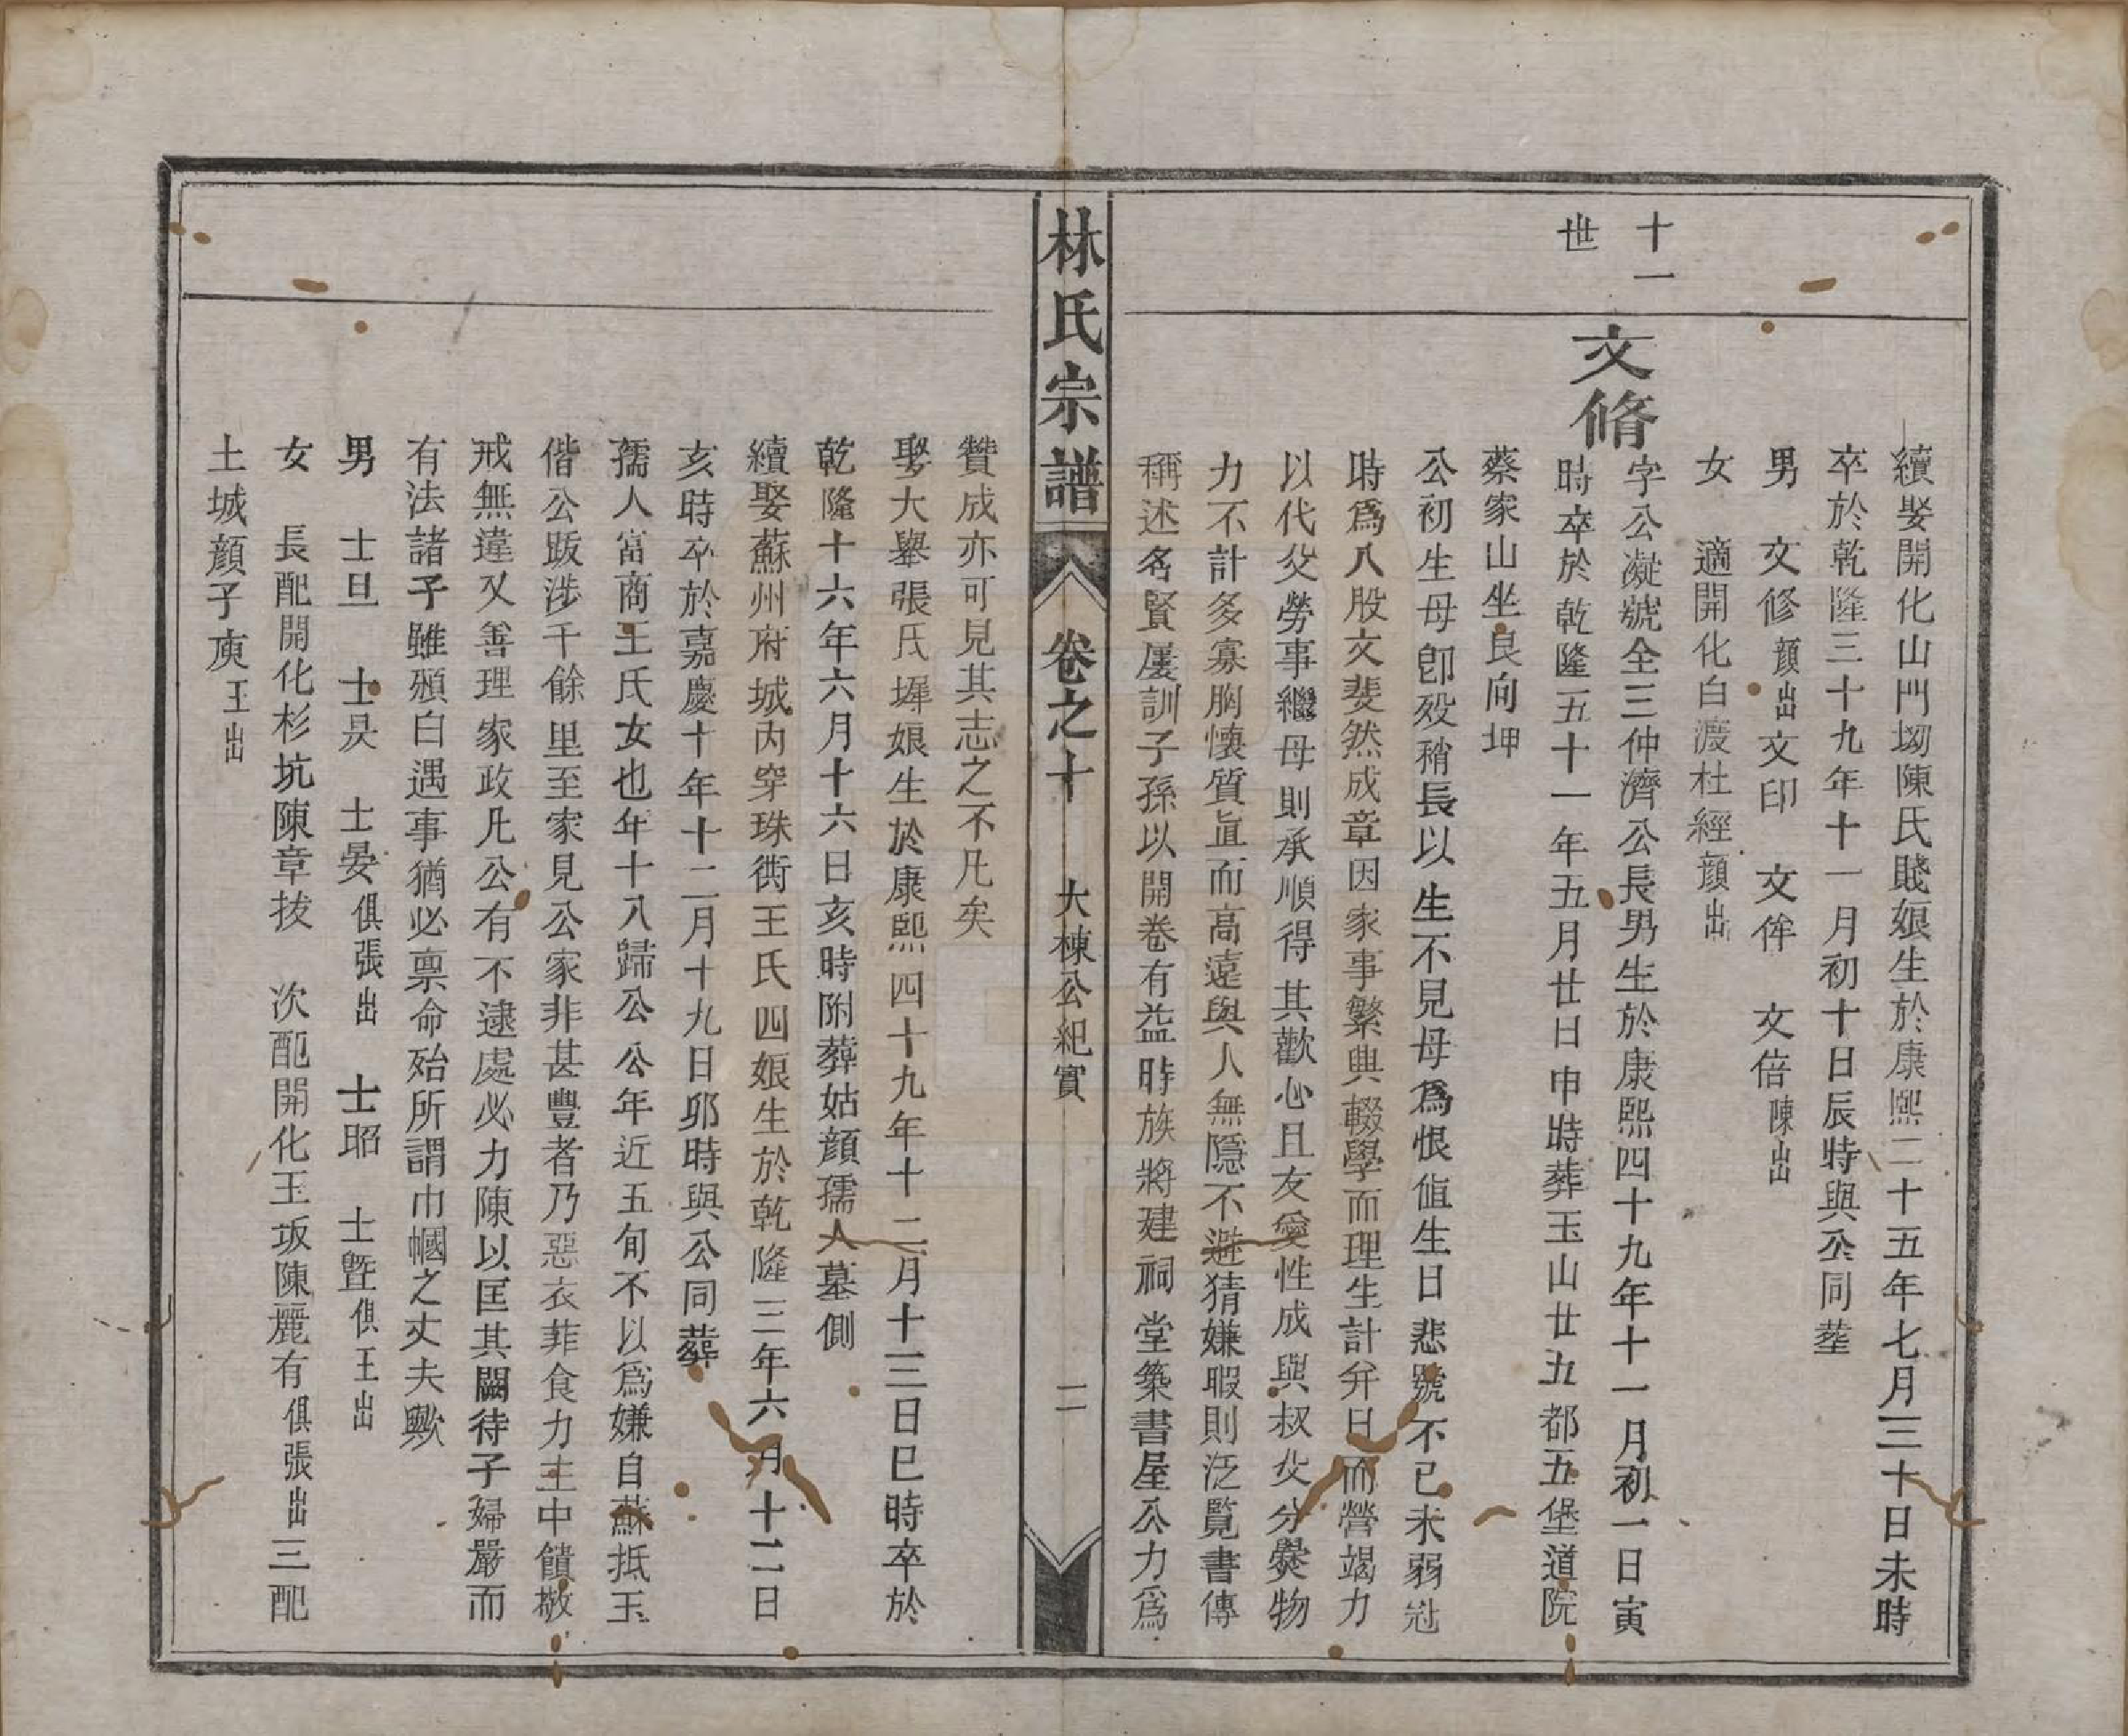 十一
世
續娶開化山門坳陳氏賤娘生於康熙二十五年七月三十日未時
卒於乾隆三十九年十一月初十日辰時與公同塟
男 文修顏出文印 文侔 文倍陳出
女 適開化白渡杜經顏出
文脩
字公凝號全三仲濟公長男生於康熙四十九年十一月初一日寅
時卒於乾隆五十一年五月廿日申時葬玉山廿九都五堡道院
蔡家山坐艮向坤
公初生母卽歿稍長以生不見母爲恨值生日悲號不已未弱冠
時爲八股文斐然成章因家事繁興輟學而理生計弁日而營竭力
以代父勞事繼母則承順得其歡心且友愛性成與叔父分爨物
力不計多寡胸懷質直而高遠與人無隱不避猜嫌暇則泛覽書傳
稱述名賢屢訓子孫以開卷有益時族將建祠堂築書屋公力爲
林氏宗譜 卷之十 大棟公紀實 二
贊成亦可見其志之不凡矣
娶大舉張氏墀娘生於康熙四十九年十二月十三日巳時卒於
乾隆十六年六月十六日亥時附葬姑顏孺人墓側
續娶蘇州府城內穿珠衖王氏四娘生於乾隆三年六月十二日
亥時卒於嘉慶十年十二月十九日卯時與公同葬
孺人富商王氏女也年十八歸公公年近五旬不以爲嫌自蘇抵玉
偕公跋涉千餘里至家見公家非甚豐者乃惡衣菲食力主中饋敬
戒無違又善理家政凡公有不逮處必力陳以匡其闕待子婦嚴而
有法諸子雖頒白遇事猶必禀命殆所謂巾幗之丈夫歟
男 士旦 士昃 士晏俱張出 士昭 士曁俱王出
女 長配開化杉坑陳章拔 次配開化玉坂陳麗有俱張出三配
土城顏子庾王出